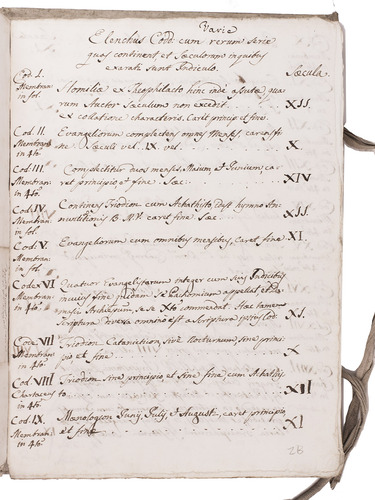 Varie
Elenchus Codd. cum rerum serie
quas continent, et Sæculorum in quibus
exarati sunt Indiculo.
Sæcula.
Cod. I.
Membran:
in fol.
Homiliæ ex Theophilacto hinc inde assutæ, qua
rum Auctor Sæculum non excedit.
ex collatione characteris. Caret princip. et fine. XII.
Cod. II.
Membran:
in 4to.
Evangeliorum complectens omnes Menses, caret fi
ne Sæculi vel. IX. vel. X.
Cod. III.
Membran:
in 4to.
Complectitur duos menses, Maium et Junium, ca,
ret principio, et fine Sæc: XIV
Cod. IV.
Membran:
in fol.
Continens Triodion cum Acathisto, Post hymno
B. M. V. caret fine Sæc. XII.
Cod: V.
Membran:
in fol.
Evangeliorum cum omnibus mensibus, Caret fine XI.
Codex VI
Membran:
in 4to:
Quatuor Evangelistarum integer cum suis Indicibus
in cuius fine quidam se Pachomium appellat
se se Xto commendat. Hac tamen
Scriptura diversa omnino est a Scriptura ipsius Cod. XI.
VII
Membran:
in 4to
Triodion. sive Nocturnum, sine princi-
pio et fine X
Cod. VIII
Chartaceus
in 4to.
Triodion sine principio et sine fine cum Acathis-
to. XII
Cod. IX.
Membran:
in 4to.
Menologion Junij, Julij, et Augusti, caret principio,
et fine XI
28